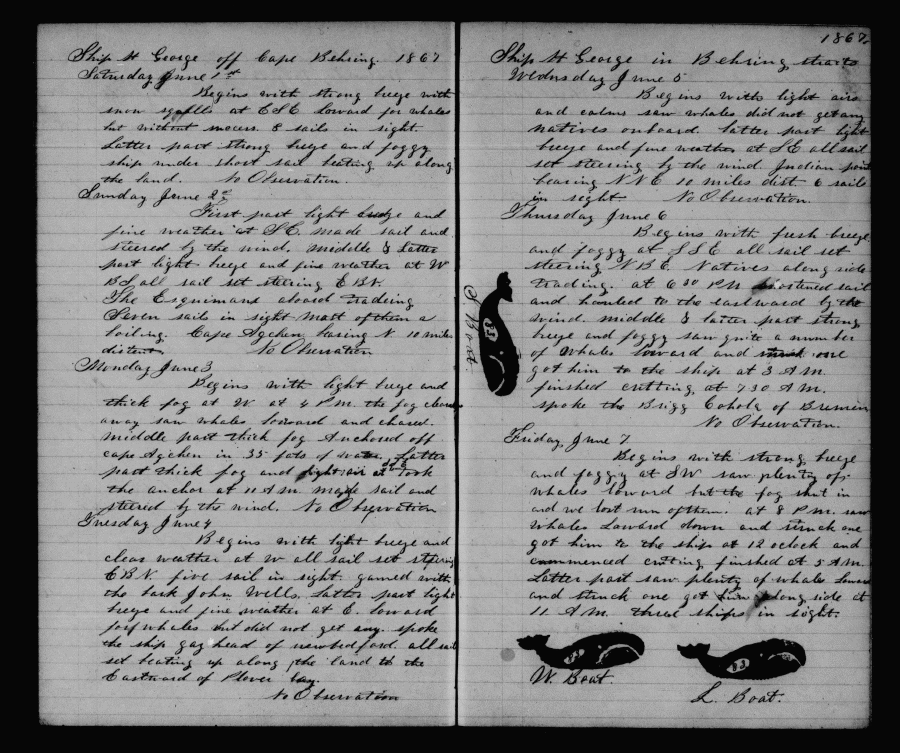 Ship St George off Cape Behring. 1867
Saturday June 1st
Begins with strong breeze with
snow squalls at ESE lowered for whales
but without success. 8 sails in sight.
Latter part strong breeze and foggy
ship under short sail beating up along
the land. No Observation.
Sunday June 2d
First part light breeze and
fine weather at SE. made sail and
steered by the wind. middle & latter
part light breeze and fine weather at W
B S. all sail set steering E B N.
The Esquimaux aboard trading
Seven sails in sight most of them a
boiling. Cape Agchen baring N. 10 miles
distent. No Observation
Monday June 3
Begins with light breeze and
thick fog at W. at 4 P.M. the fog
away saw whales lowered and chased.
middle part thick fog Anchored off
cape Agchen in 35 fots of water. Latter
part thick fog and light air at took
the anchor at 11 A.M. made sail and
steered by the wind. No Observation
Tuesday June 4
Begins with light breeze and
clear weather at W all sail set steering
E B N. five sail in sight. gamed with
the bark John Wells. Latter part light
breeze and fine weather at E. lowerd
for whales but did not get any. spoke
the ship gay head of newbedford. all sail
set beating up along the land to the
Eastward of Plover bay.
No Observation
1867.
Ship St George in Behring straits
Wednesday June 5
Begins with light airs
and calms saw whales did not get any
natives onboard. latter part light
breeze and fine weather at SE all sail
set steering by the wind. Indian point
bearing NNE 10 miles dist. 6 sails
in sight No Observation.
Thursday June 6
Begins with fresh breeze
and foggy at SSE all sail set
steering N B E. Natives along side
trading. at 6 30 PM shortened sail
and hauled to the eastward by the
wind. middle & latter part strong
breeze and foggy saw quite a number
of whales lowerd and struck one
got him to the ship at 3 A.M.
finished cutting at 7 30 A.M.
spoke the Brigg Cohola of Bremen
No Observation.
S. Boat.
83
Friday June 7
Begins with strong breeze
and foggy at SW saw plenty of
whales lowerd but the fog shut in
and we lost run of them. at 8 P.M. saw
whales Lowerd down and struck one
got him to the ship at 12 oclock and
commenced cutting finished at 5 A.M.
Latter part saw plenty of whales Lowerd
and struck one got him along side at
11 A.M. three ships in sight.
W. Boat.
83
L. Boat.